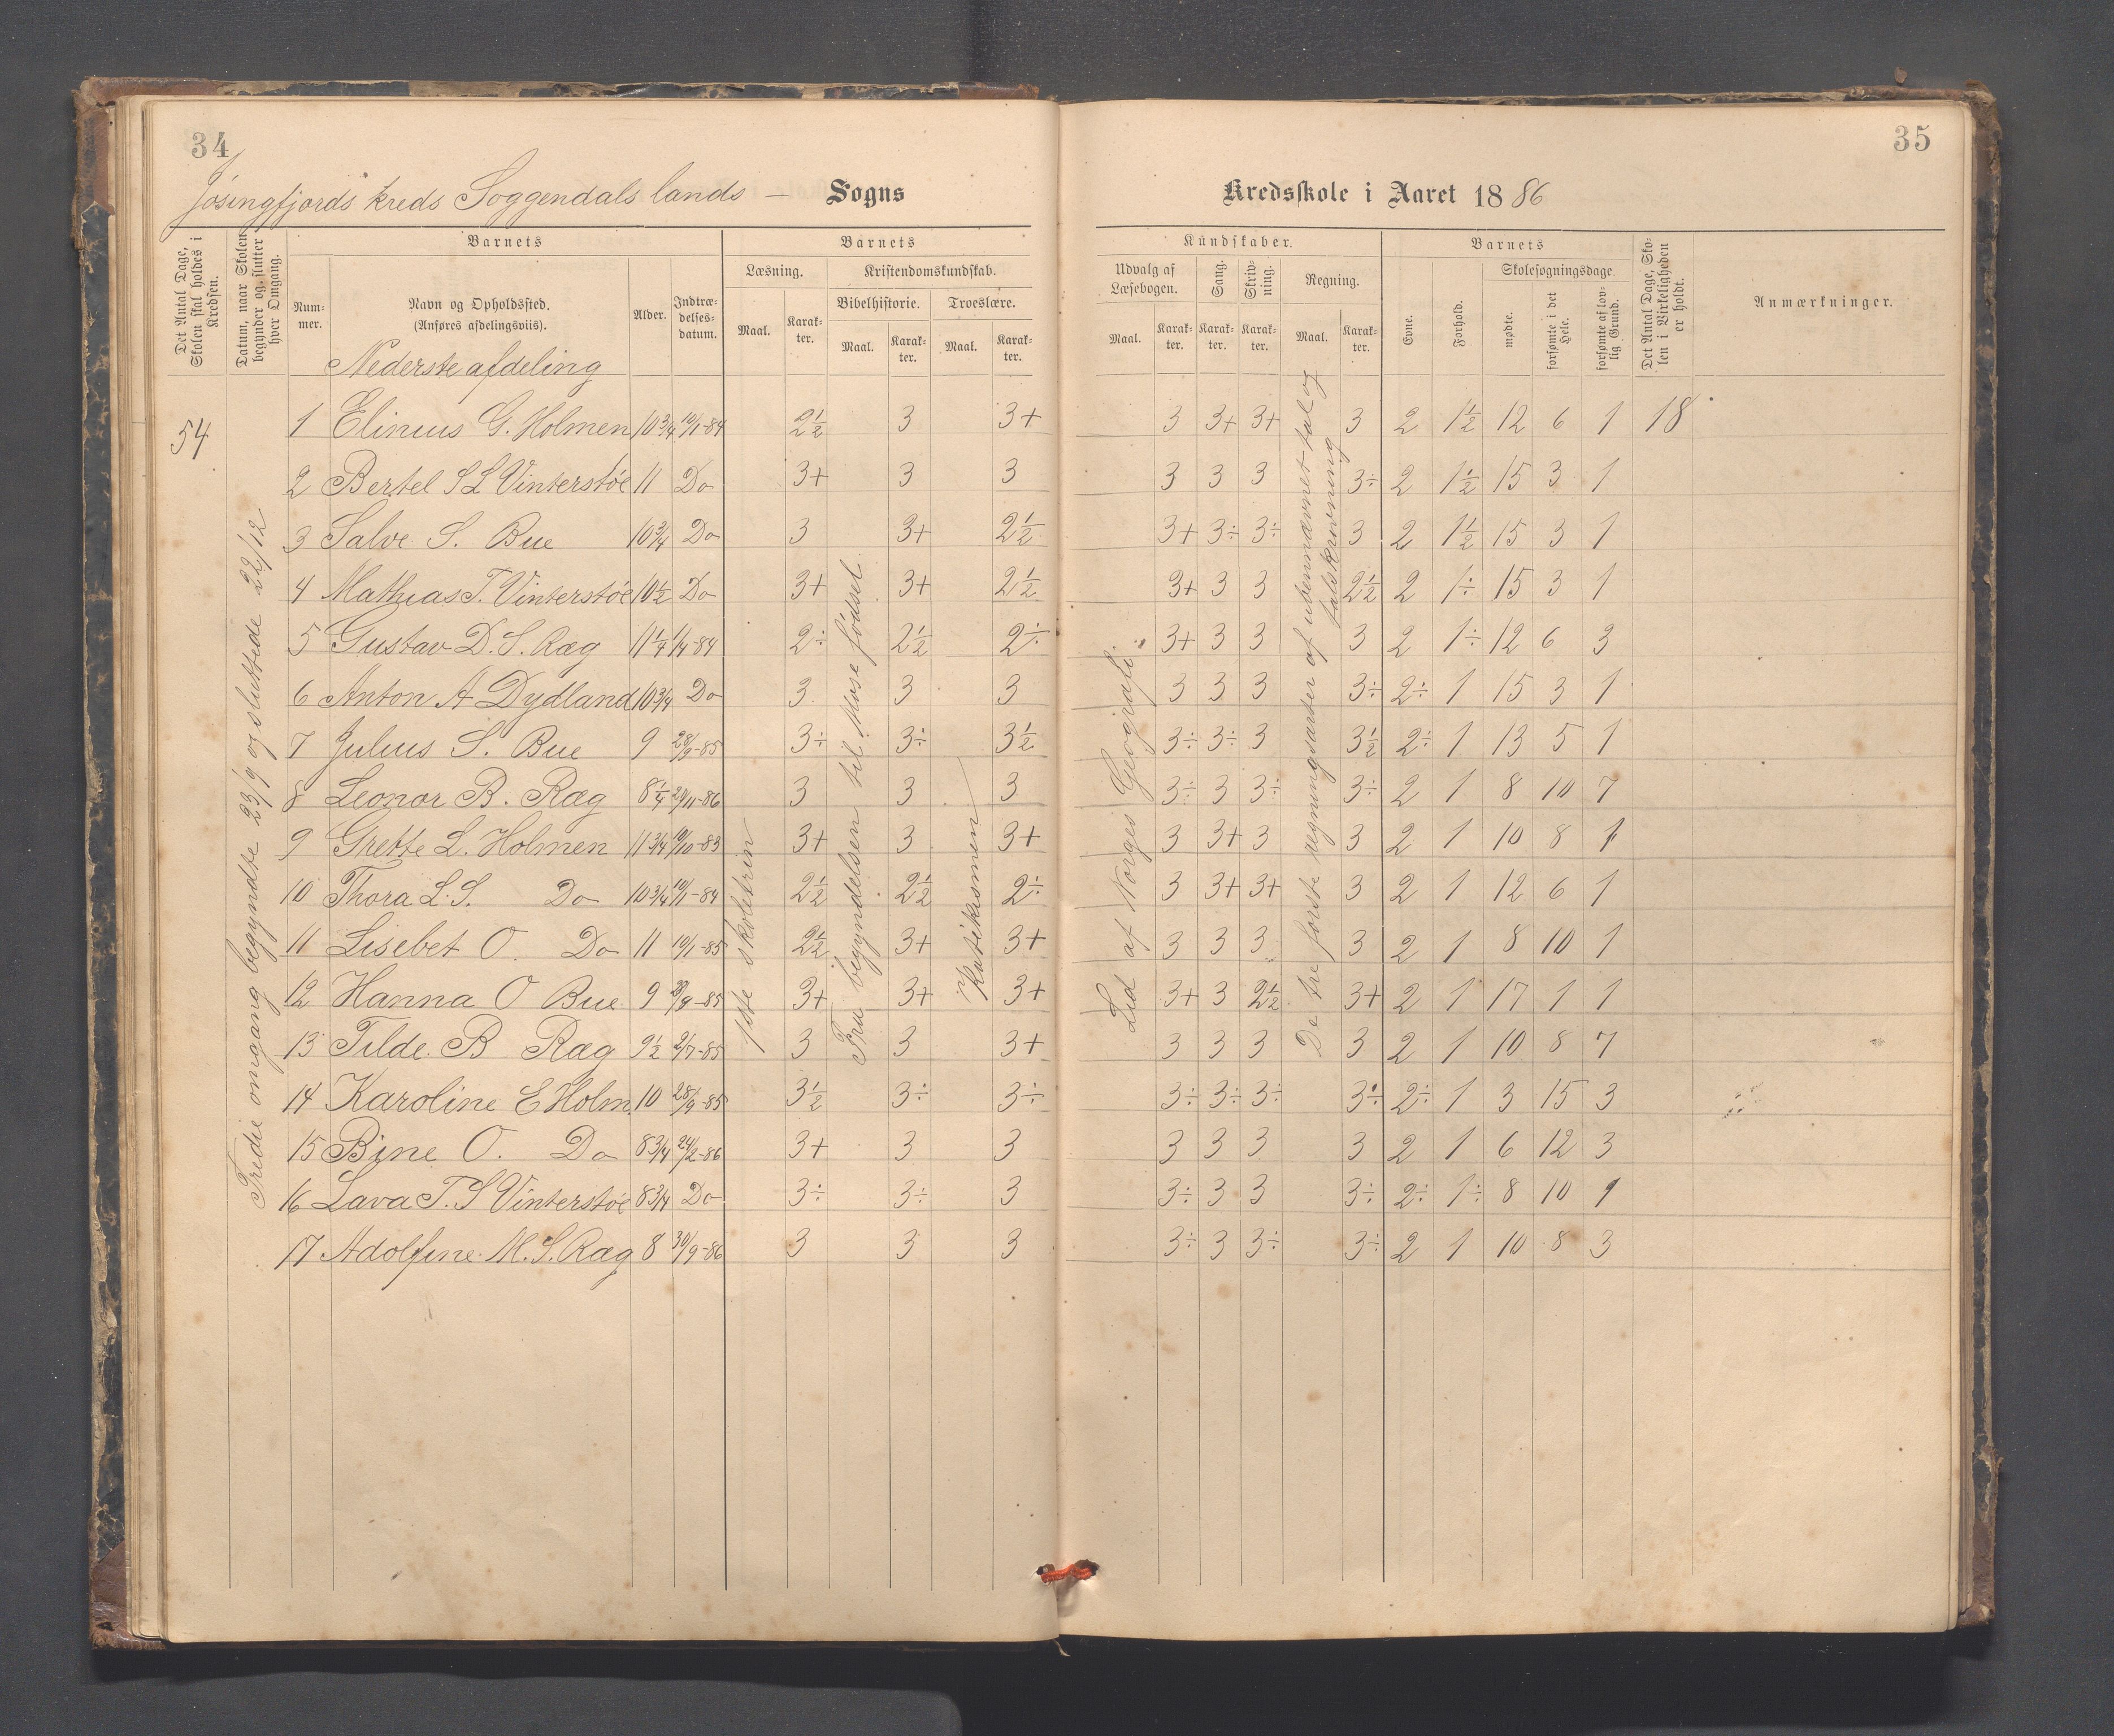 34
35
Jøsingfjords kreds Soggendals lands — Sogns
Kredsskole i Aaret 1886
Det Antal Dage, Skolen skal holdes i Kredsen.
Datum, naar Skolen begynder og slutter hver Omgang.
Barnets
Nummer.
Navn og Opholdssted. (Anføres afdelingsviis).
Alder.
Indtrædelsesdatum.
Barnets
Læsning.
Kristendomskundskab.
Bibelhistorie.
Troeslære.
Maal. Karakter. Maal. Karakter. Maal. Karakter.
Kundskaber.
Udvalg af Læsebogen.
Sang.
Skrivning.
Regning.
Maal. Karakter. Karakter. Karakter. Maal. Karakter.
Barnets
Evne.
Forhold.
Skolesøgningsdage.
mødte.
forsømte i det Hele.
forsømte af lovlig Grund.
Det Antal Dage, Skolen i Virkeligheden er holdt.
Anmærkninger.
Nederste afdeling
54
Tredie omgang begyndte 23/9 og sluttede 22/12
1ste skoletrin
Fra begyndelsen til Mose fødsel
Katekismen
Lid af Norges Geografi.
De tre første regningsarter af ubenævnet tal og talskrivning
1 Elinius G. Holmen 10 3/4 10/1-84 2½ 3 3+ 3 3+ 3+ 3 2 1½ 12 6 1 18
2 Bertel S L Vinterstøe 11 Do 3+ 3 3 3 3 3 3÷ 2 1½ 15 3 1
3 Salve S. Bue 10 3/4 Do 3 3+ 2½ 3+ 3÷ 3÷ 3 2 1½ 15 3 1
4 Mathias T. Vinterstøe 10½ Do 3+ 3+ 2½ 3+ 3 3 2½ 2 1÷ 15 3 1
5 Gustav D. S. Ræg 11¼ 1/4-84 2÷ 2½ 2÷ 3+ 3 3 3 2 1÷ 12 6 3
6 Anton A Dydland 10 3/4 Do 3 3 3 3 3 3 3÷ 2÷ 1 15 3 1
7 Julius S. Bue 9 28/9-85 3÷ 3÷ 3½ 3÷ 3÷ 3 3½ 2÷ 1 13 5 1
8 Leonor B. Ræg 8¼ 29/11-86 3 3 3 3÷ 3 3÷ 3÷ 2 1 8 10 7
9 Grette L. Holmen 11 3/4 10/10-83 3+ 3 3+ 3 3+ 3 3 2 1 10 8 1
10 Thora L. S. Do 10 3/4 10/1-84 2½ 2½ 2÷ 3 3+ 3+ 3 2 1 12 6 1
11 Lisebet O. Do 11 10/1-85 2½ 3+ 3+ 3 3 3 3 2 1 8 10 1
12 Hanna O Bue 9 28/9-85 3+ 3+ 3+ 3+ 3 2½ 3+ 2 1 17 1 1
13 Tilde B Ræg 9½ 2/7-85 3 3 3+ 3 3 3 3 2 1 10 8 7
14 Karoline E Holm. 10 28/9-85 3½ 3÷ 3÷ 3÷ 3÷ 3÷ 3÷ 2÷ 1 3 15 3
15 Bine O. Do 8 3/4 24/2-86 3+ 3 3 3 3 3 3 2 1 6 12 3
16 Lava T. S Vinterstøe 8 3/4 Do 3÷ 3÷ 3 3÷ 3 3 3÷ 2÷ 1÷ 8 10 1
17 Adolfine M. S. Ræg 8 30/9-86 3 3 3 3÷ 3 3÷ 3÷ 2 1 10 8 3